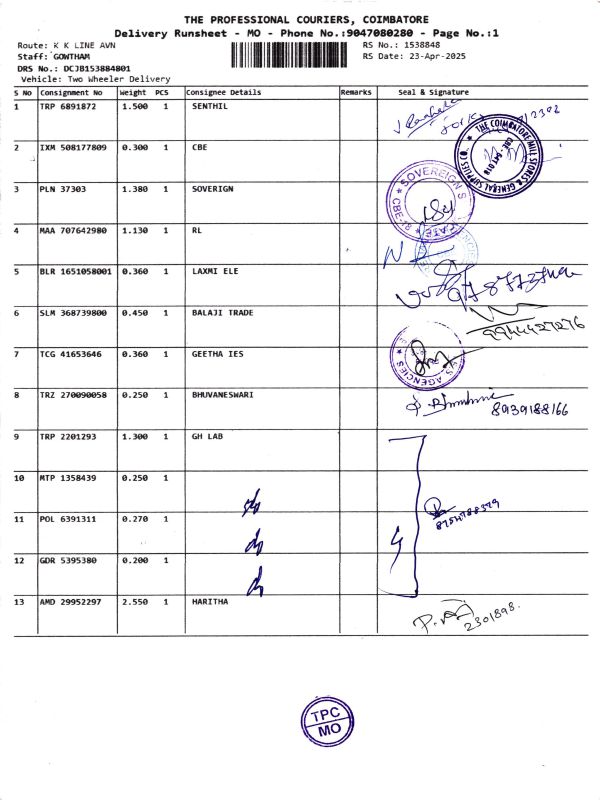 THE PROFESSIONAL COURIERS, COIMBATORE
Delivery Runsheet - MO - Phone No.:9047080280 - Page No.:1
Route: K K LINE AVN
RS No.: 1538848
Staff: GOWTHAM
RS Date: 23-Apr-2025
DRS No.: DCJB153884801
Vehicle: Two Wheeler Delivery
S No Consignment No Weight PCS Consignee Details Remarks Seal & Signature
1 TRP 6891872 1.500 1 SENTHIL
2 IXM 508177809 0.300 1 CBE
THE COIMBATORE MILL STORES & GENERAL SUPPLIES CO.
3 PLN 37303 1.380 1 SOVERIGN
SOVEREIGN S
CBE-18
4 MAA 707642980 1.130 1 RL
5 BLR 1651058001 0.360 1 LAXMI ELE
6 SLM 368739800 0.450 1 BALAJI TRADE
9944427276
7 TCG 41653646 0.360 1 GEETHA IES
AGENCIES
8 TRZ 270090058 0.250 1 BHUVANESWARI
8939188166
9 TRP 2201293 1.300 1 GH LAB
10 MTP 1358439 0.250 1
11 POL 6391311 0.270 1
12 GDR 5395380 0.200 1
13 AMD 29952297 2.550 1 HARITHA
2301898.
TPC
MO